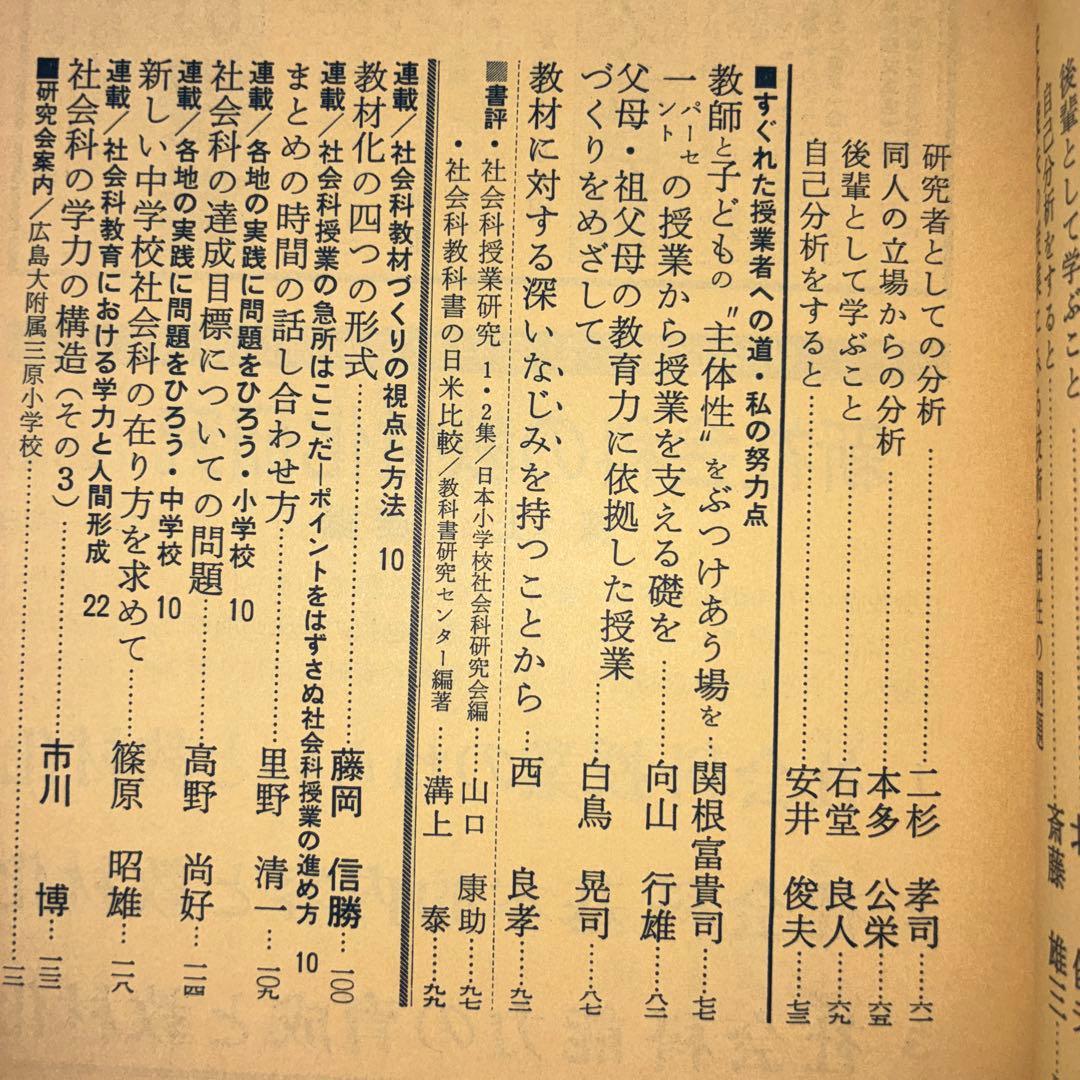 後輩として学ぶこと
自己分析をすると
斎藤
研究者としての分析……二杉 孝司……六一
同人の立場からの分析……本多 公栄……六五
後輩として学ぶこと……石堂 良人……六九
自己分析をすると……安井 俊夫……七三
■すぐれた授業者への道・私の努力点
教師と子どもの〝主体性〟をぶつけあう場を……関根富貴司……七七
一パーセントの授業から授業を支える礎を……向山 行雄……八二
父母・祖父母の教育力に依拠した授業
づくりをめざして……白鳥 晃司……八七
教材に対する深いなじみを持つことから……西 良孝……九二
■書評・社会科授業研究 1・2集/日本小学校社会科研究会編……山口 康助……九七
・社会科教科書の日米比較/教科書研究センター編著……溝上 泰……九九
連載/社会科教材づくりの視点と方法 10
教材化の四つの形式……藤岡 信勝……一〇〇
連載/社会科授業の急所はここだ―ポイントをはずさぬ社会科授業の進め方 10
まとめの時間の話し合わせ方……里野 清一……一〇九
連載/各地の実践に問題をひろう・小学校 10
社会科の達成目標についての問題……高野 尚好……一一四
連載/各地の実践に問題をひろう・中学校 10
新しい中学校社会科の在り方を求めて……篠原 昭雄……一一八
連載/社会科教育における学力と人間形成 22
社会科の学力の構造(その3)……市川 博……一二三
■研究会案内/広島大附属三原小学校……